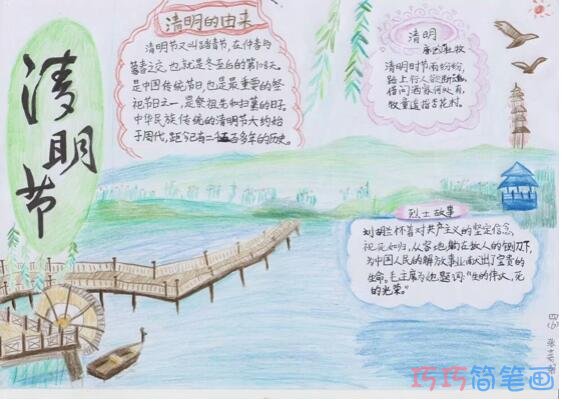 清明节
清明的由来
清明节又叫踏青节，在仲春与
暮春之交，也就是冬至后的第108天。
是中国传统节日，也是最重要的祭
祀节日之一，是祭祖先和扫墓的日子。
中华民族传统的清明节大约始
于周代，距今已有二千五百多年的历史。
清明
清明时节雨纷纷，
路上行人欲断魂。
借问酒家何处有，
牧童遥指杏花村。
烈士故事
刘胡兰怀着对共产主义的坚定信念，
视死如归，从容地躺在敌人的铡刀下，
为中国人民的解放事业献出了宝贵的
生命。毛主席为她题词："生的伟大，死
的光荣。"
巧巧简笔画